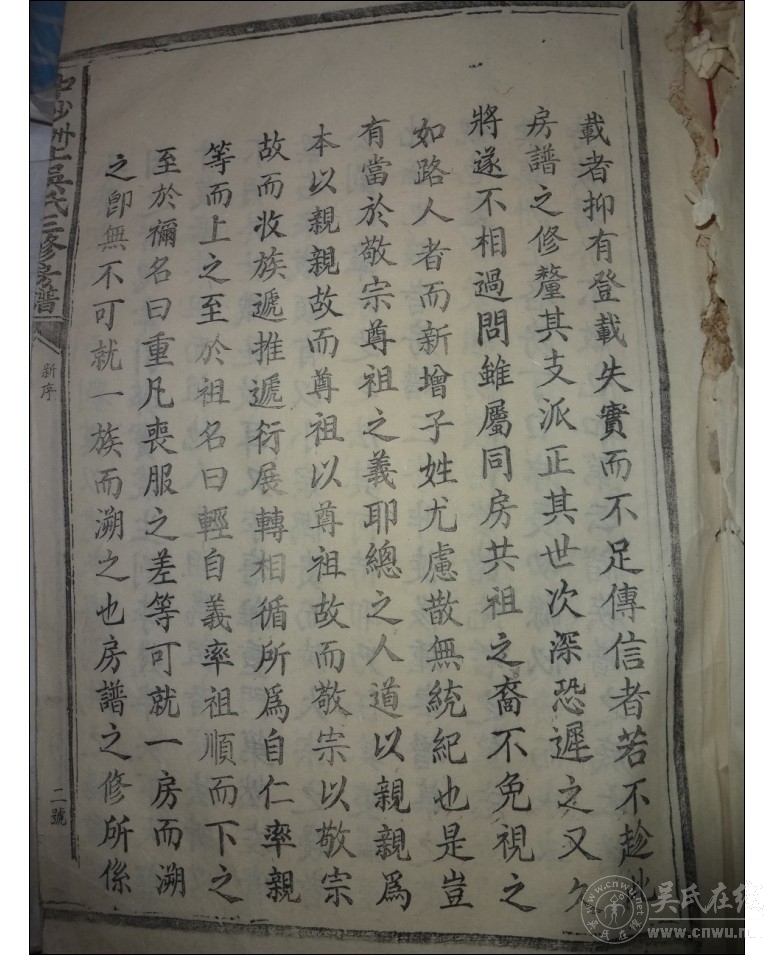 載者抑有登載失實而不足傳信者若不趁此
房譜之修釐其支派正其世次深恐遲之又久
將遂不相過問雖屬同房共祖之裔不免視之
如路人者而新增子姓尤慮散無統紀也是豈
有當於敬宗尊祖之義耶總之人道以親親爲
本以親親故而尊祖以尊祖故而敬宗以敬宗
故而收族遞推遞衍展轉相循所爲自仁率親
等而上之至於祖名曰輕自義率祖順而下之
至於禰名曰重凡喪服之差等可就一房而溯
之卽無不可就一族而溯之也房譜之修所係
吳氏三修房譜
新序
二號
吴氏在线
www.cnwu.net